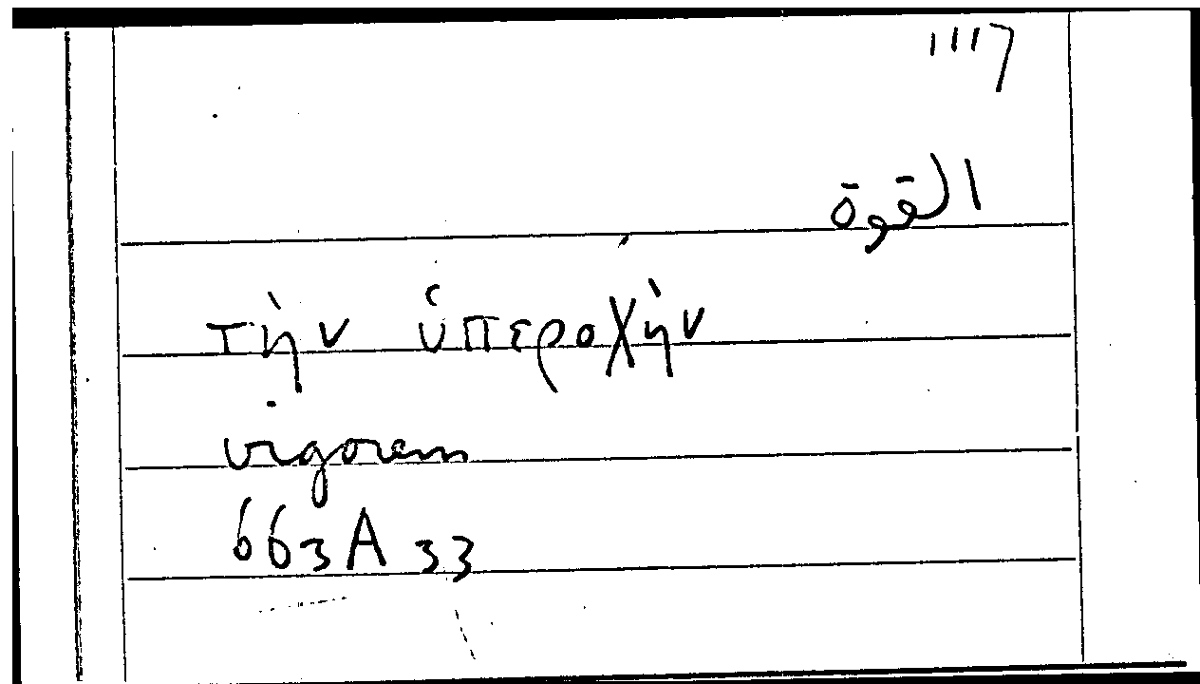 1117
القوة
τὴν ὑπεροχὴν
vigorem
663A33